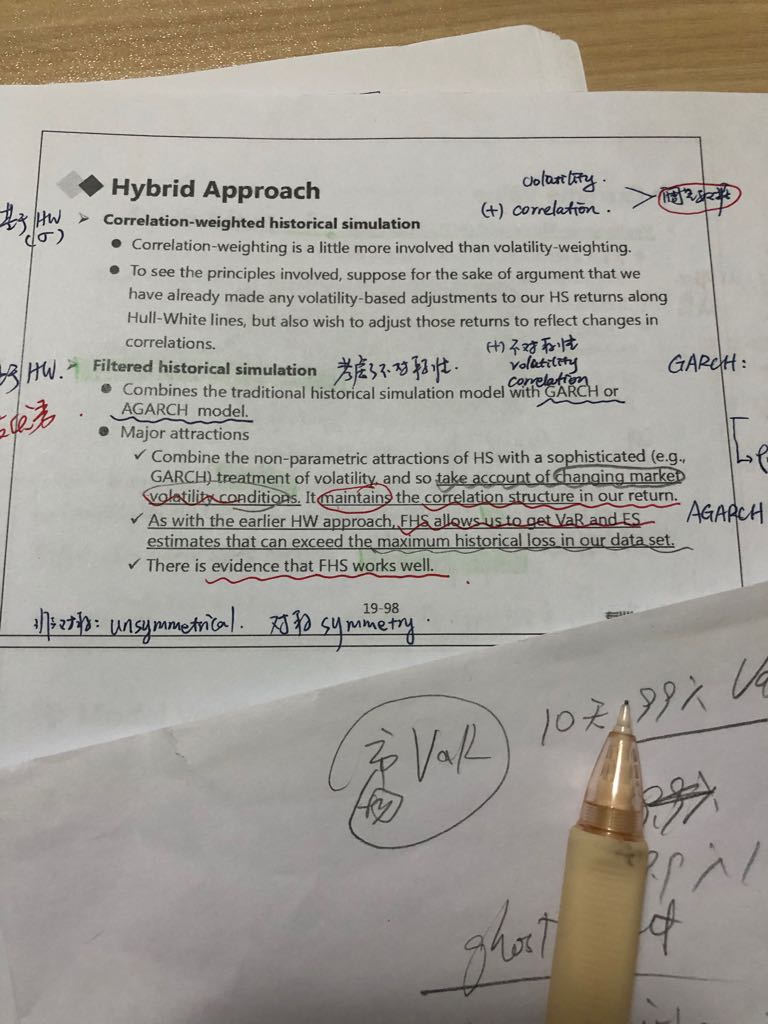 Hybrid Approach
volatility.
(+) correlation.
基于HW
(σ)
➤ Correlation-weighted historical simulation
● Correlation-weighting is a little more involved than volatility-weighting.
● To see the principles involved, suppose for the sake of argument that we
have already made any volatility-based adjustments to our HS returns along
Hull-White lines, but also wish to adjust those returns to reflect changes in
correlations.
HW.
➤ Filtered historical simulation
考虑了不对称性.
(+) 不对称性
volatility
correlation
GARCH:
● Combines the traditional historical simulation model with GARCH or
AGARCH model.
● Major attractions
✓ Combine the non-parametric attractions of HS with a sophisticated (e.g.,
GARCH) treatment of volatility, and so take account of changing market
volatility conditions. It maintains the correlation structure in our return.
AGARCH
✓ As with the earlier HW approach, FHS allows us to get VaR and ES
estimates that can exceed the maximum historical loss in our data set.
✓ There is evidence that FHS works well.
19-98
非对称: unsymmetrical. 对称 symmetry.
VaR
10天 99%
ghost